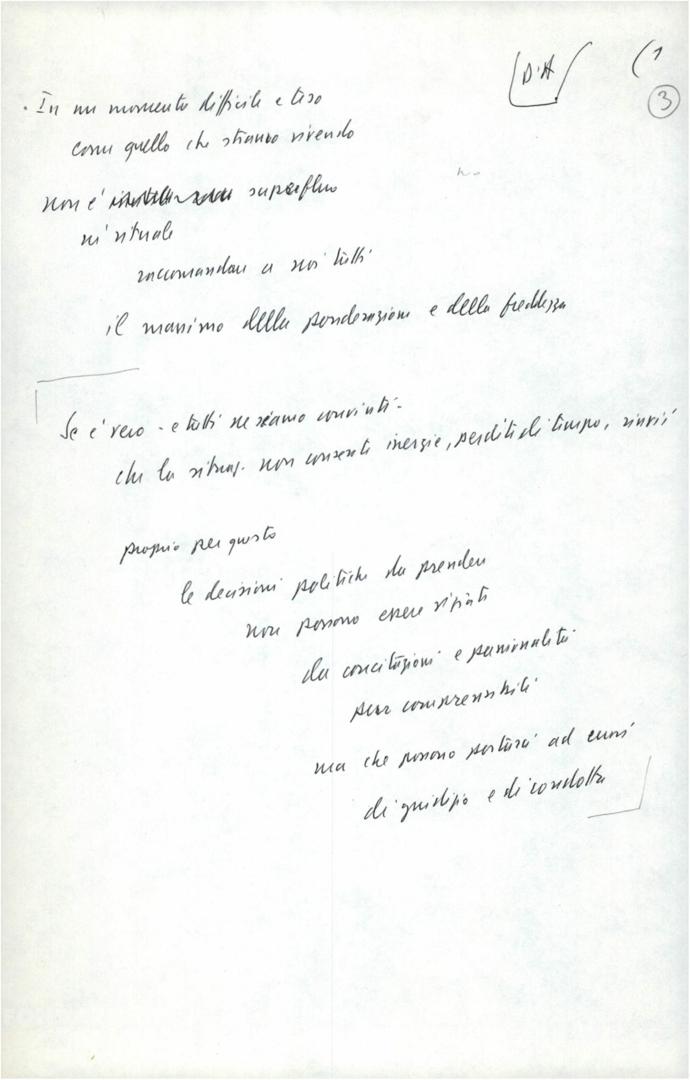 D'A
(1
3
. In un momento difficile e teso
come quello che stiamo vivendo
non è superfluo
né rituale
raccomandare a noi tutti
il massimo della ponderazione e della freddezza
Se è vero - e tutti ne siamo convinti -
che la situaz. non consente inerzie, perdite di tempo, rinvii
proprio per questo
le decisioni politiche da prendere
non possono essere viziate
da concitazioni e passionalità
pur comprensibili
ma che possono portarci ad errori
di giudizio e di condotta